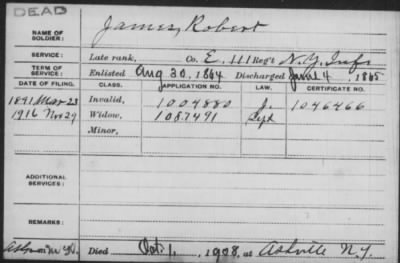 DEAD
NAME OF SOLDIER: James, Robert
SERVICE: Late rank, Co. E, 111 Reg't N.Y. Inf.
TERM OF SERVICE: Enlisted Aug 30, 1864 Discharged June 4, 1865
DATE OF FILING. CLASS. APPLICATION NO. LAW. CERTIFICATE NO.
1891 Mar 23 Invalid, 1004880 J. 1046466
1916 Nov 29 Widow, 1087491
Minor,
ADDITIONAL SERVICES:
REMARKS:
Died Oct. 1, 1908, at Ashville N.Y.